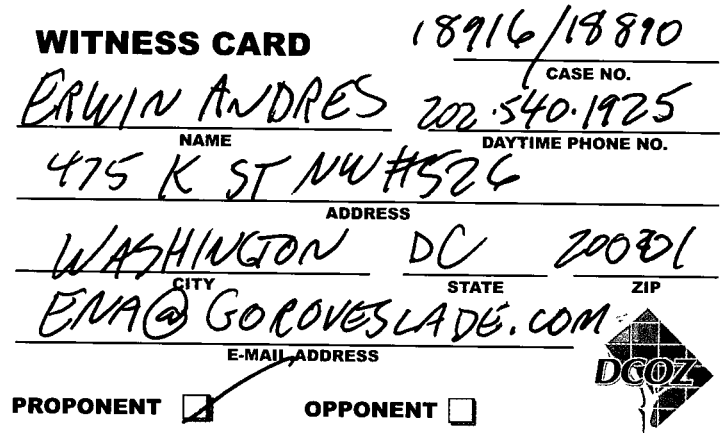 WITNESS CARD
18916/18890
CASE NO.
ERWIN ANDRES 202.540.1925
NAME DAYTIME PHONE NO.
475 K ST NW #526
ADDRESS
WASHINGTON DC 20001
CITY STATE ZIP
ENA@GOROVESLADE.COM
E-MAIL ADDRESS
DCOZ
PROPONENT OPPONENT